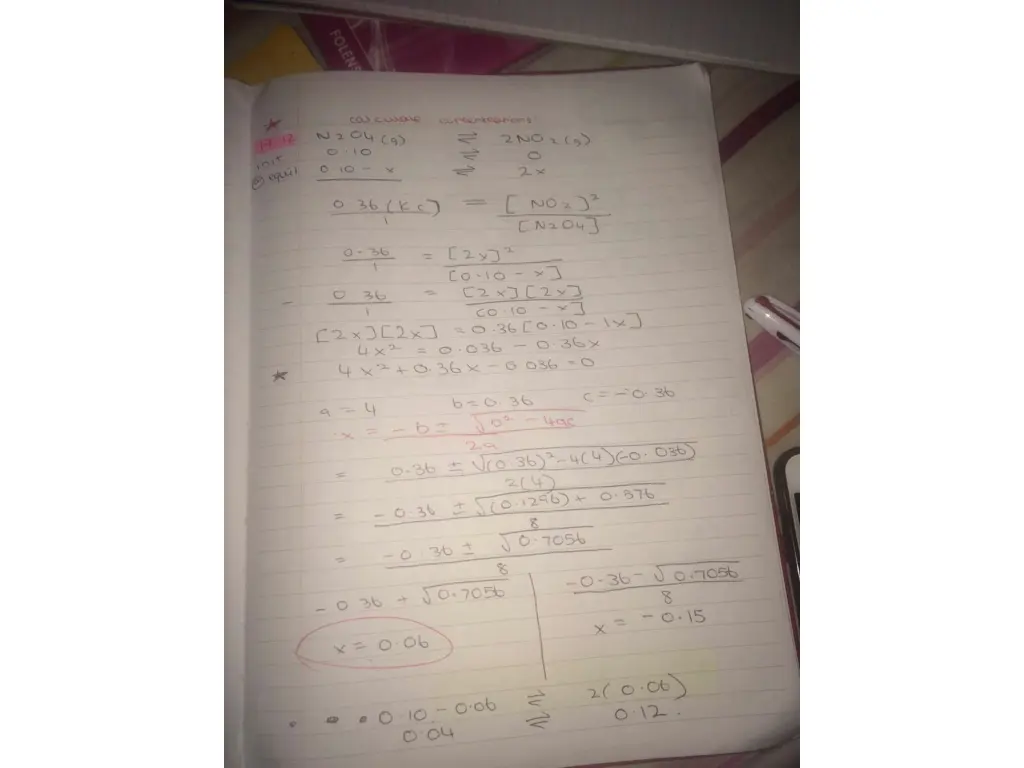 FOLENS
calculate concentrations
N2O4(g) ⇌ 2NO2(g)
init 0.10 ⇌ 0
equil 0.10 - x ⇌ 2x
0.36(Kc)/1 = [NO2)²/[N2O4]
0.36/1 = [2x]²/[0.10 - x]
0.36/1 = [2x][2x]/[0.10 - x]
[2x][2x] = 0.36[0.10 - 1x]
4x² = 0.036 - 0.36x
4x² + 0.36x - 0.036 = 0
a = 4 b = 0.36 c = -0.36
x = -b ± √b² - 4ac/2a
= 0.36 ± √(0.36)² - 4(4)(-0.036)/2(4)
= -0.36 ± √(0.1296) + 0.576/8
= -0.36 ± √0.7056/8
-0.36 + √0.7056 | -0.36 - √0.7056/8
x = 0.06 | x = -0.15
0.10 - 0.06 ⇌ 2(0.06)
0.04 ⇌ 0.12.